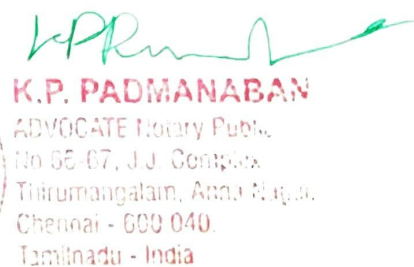 K.P. PADMANABAN
ADVOCATE Notary Public
No 65-67, J.J. Complex
Thirumangalam, Anna Nagar,
Chennai - 600 040.
Tamilnadu - India